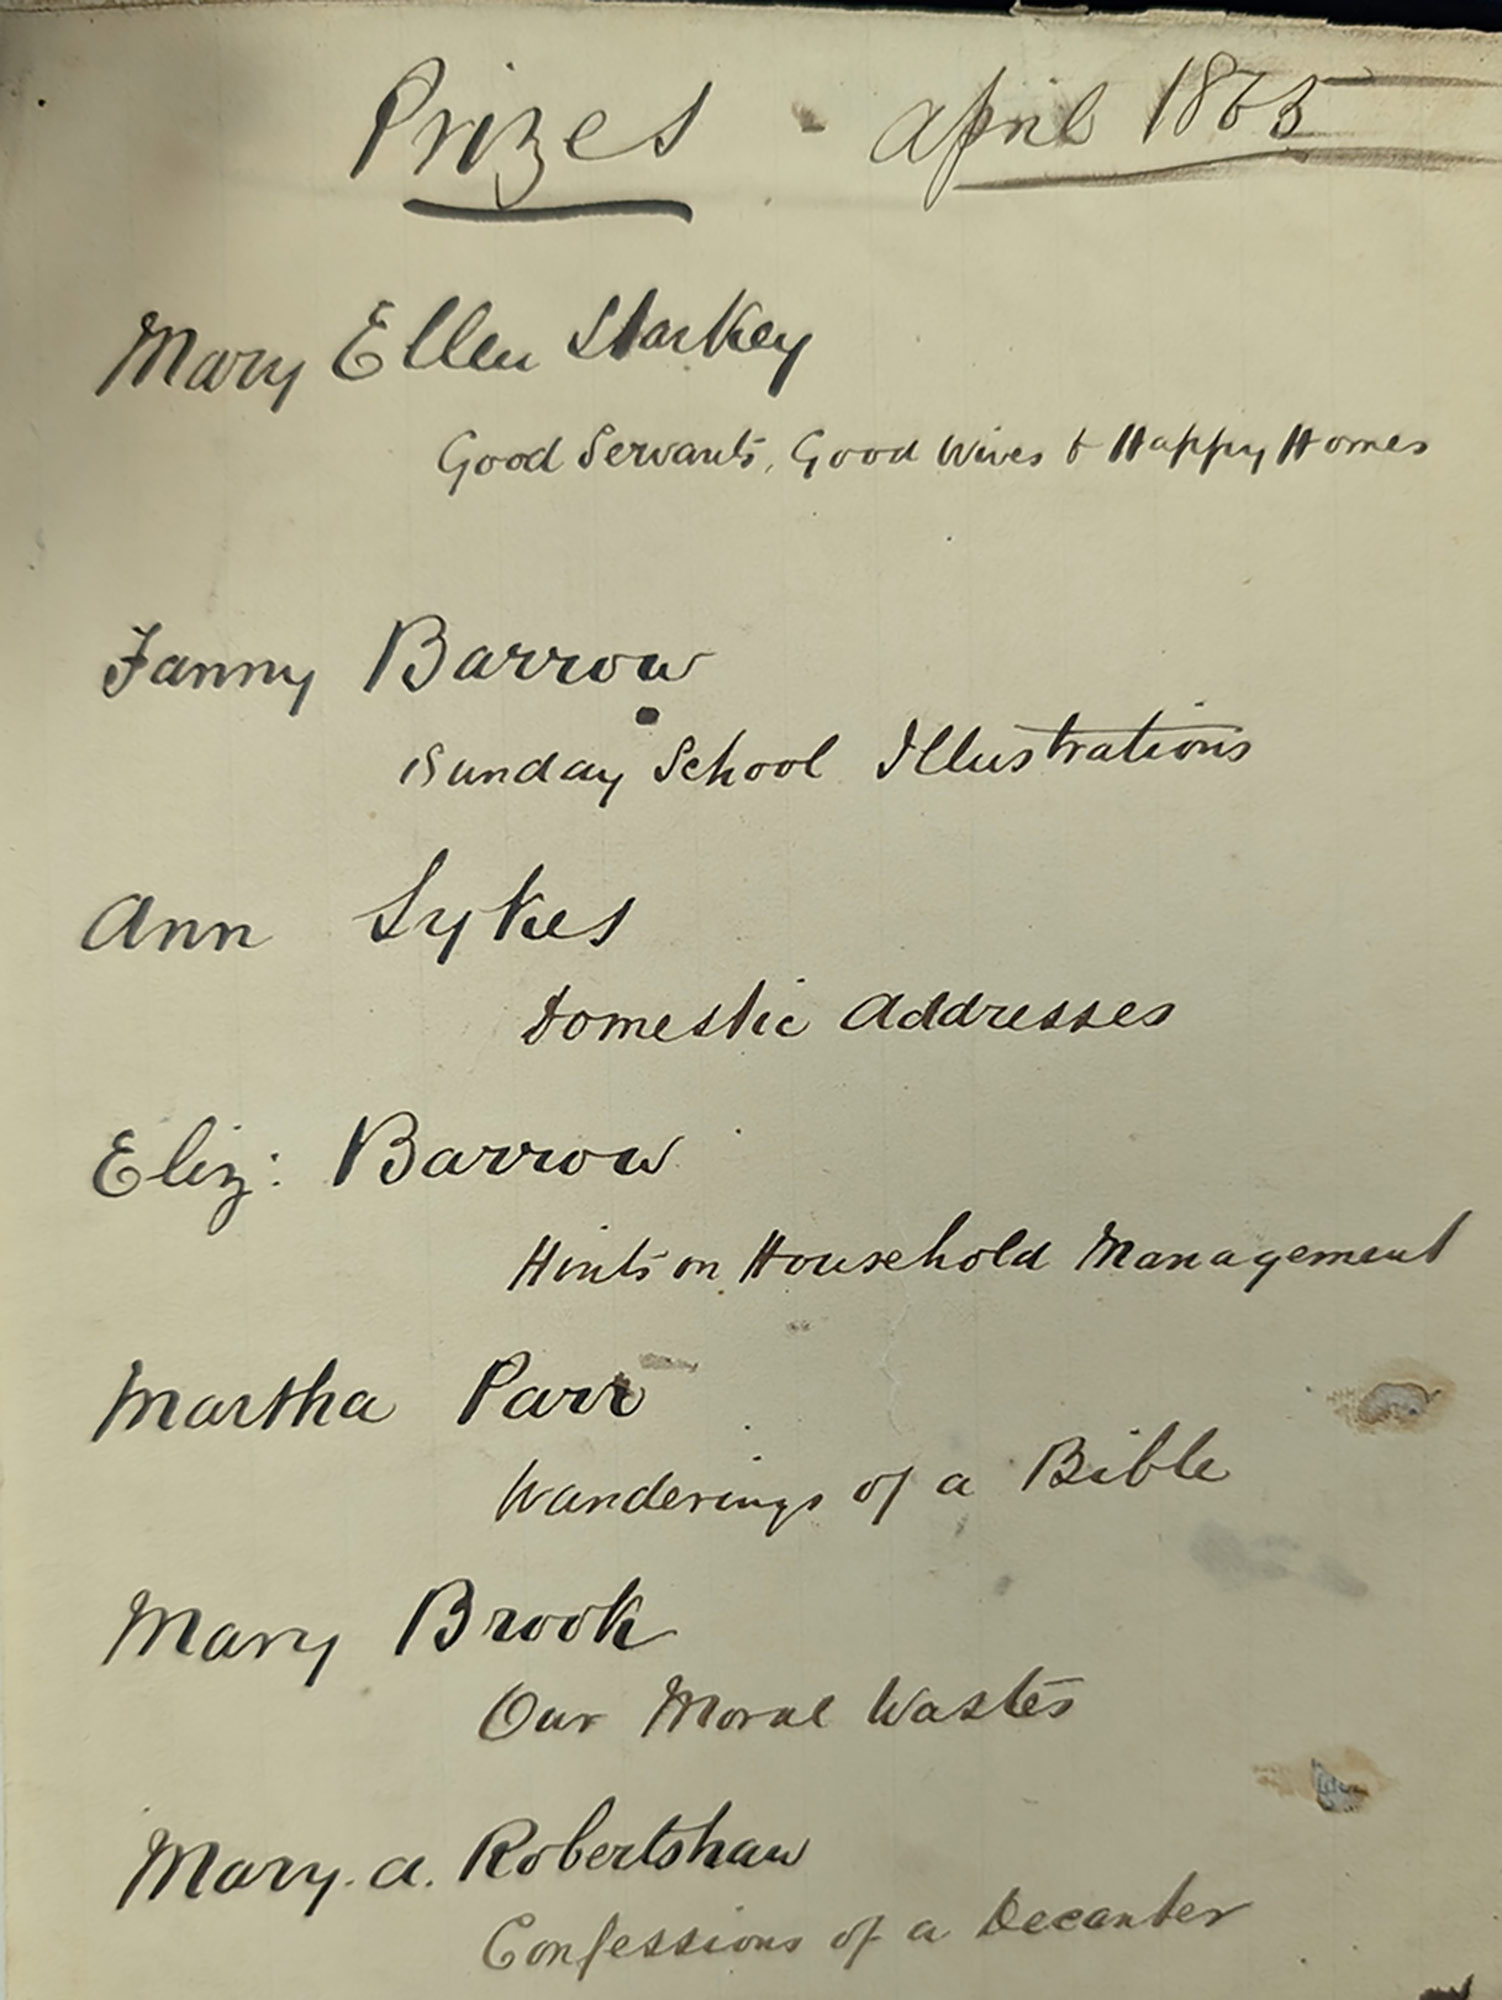 Prizes - April 1863
Mary Ellen Starkey
Good Servants, Good Wives & Happy Homes
Fanny Barrow
Sunday School Illustrations
Ann Sykes
Domestic Addresses
Eliz: Barrow
Hints on Household Management
Martha Parr
Wanderings of a Bible
Mary Brook
Our Moral Wastes
Mary. A. Robertshaw
Confessions of a Decanter